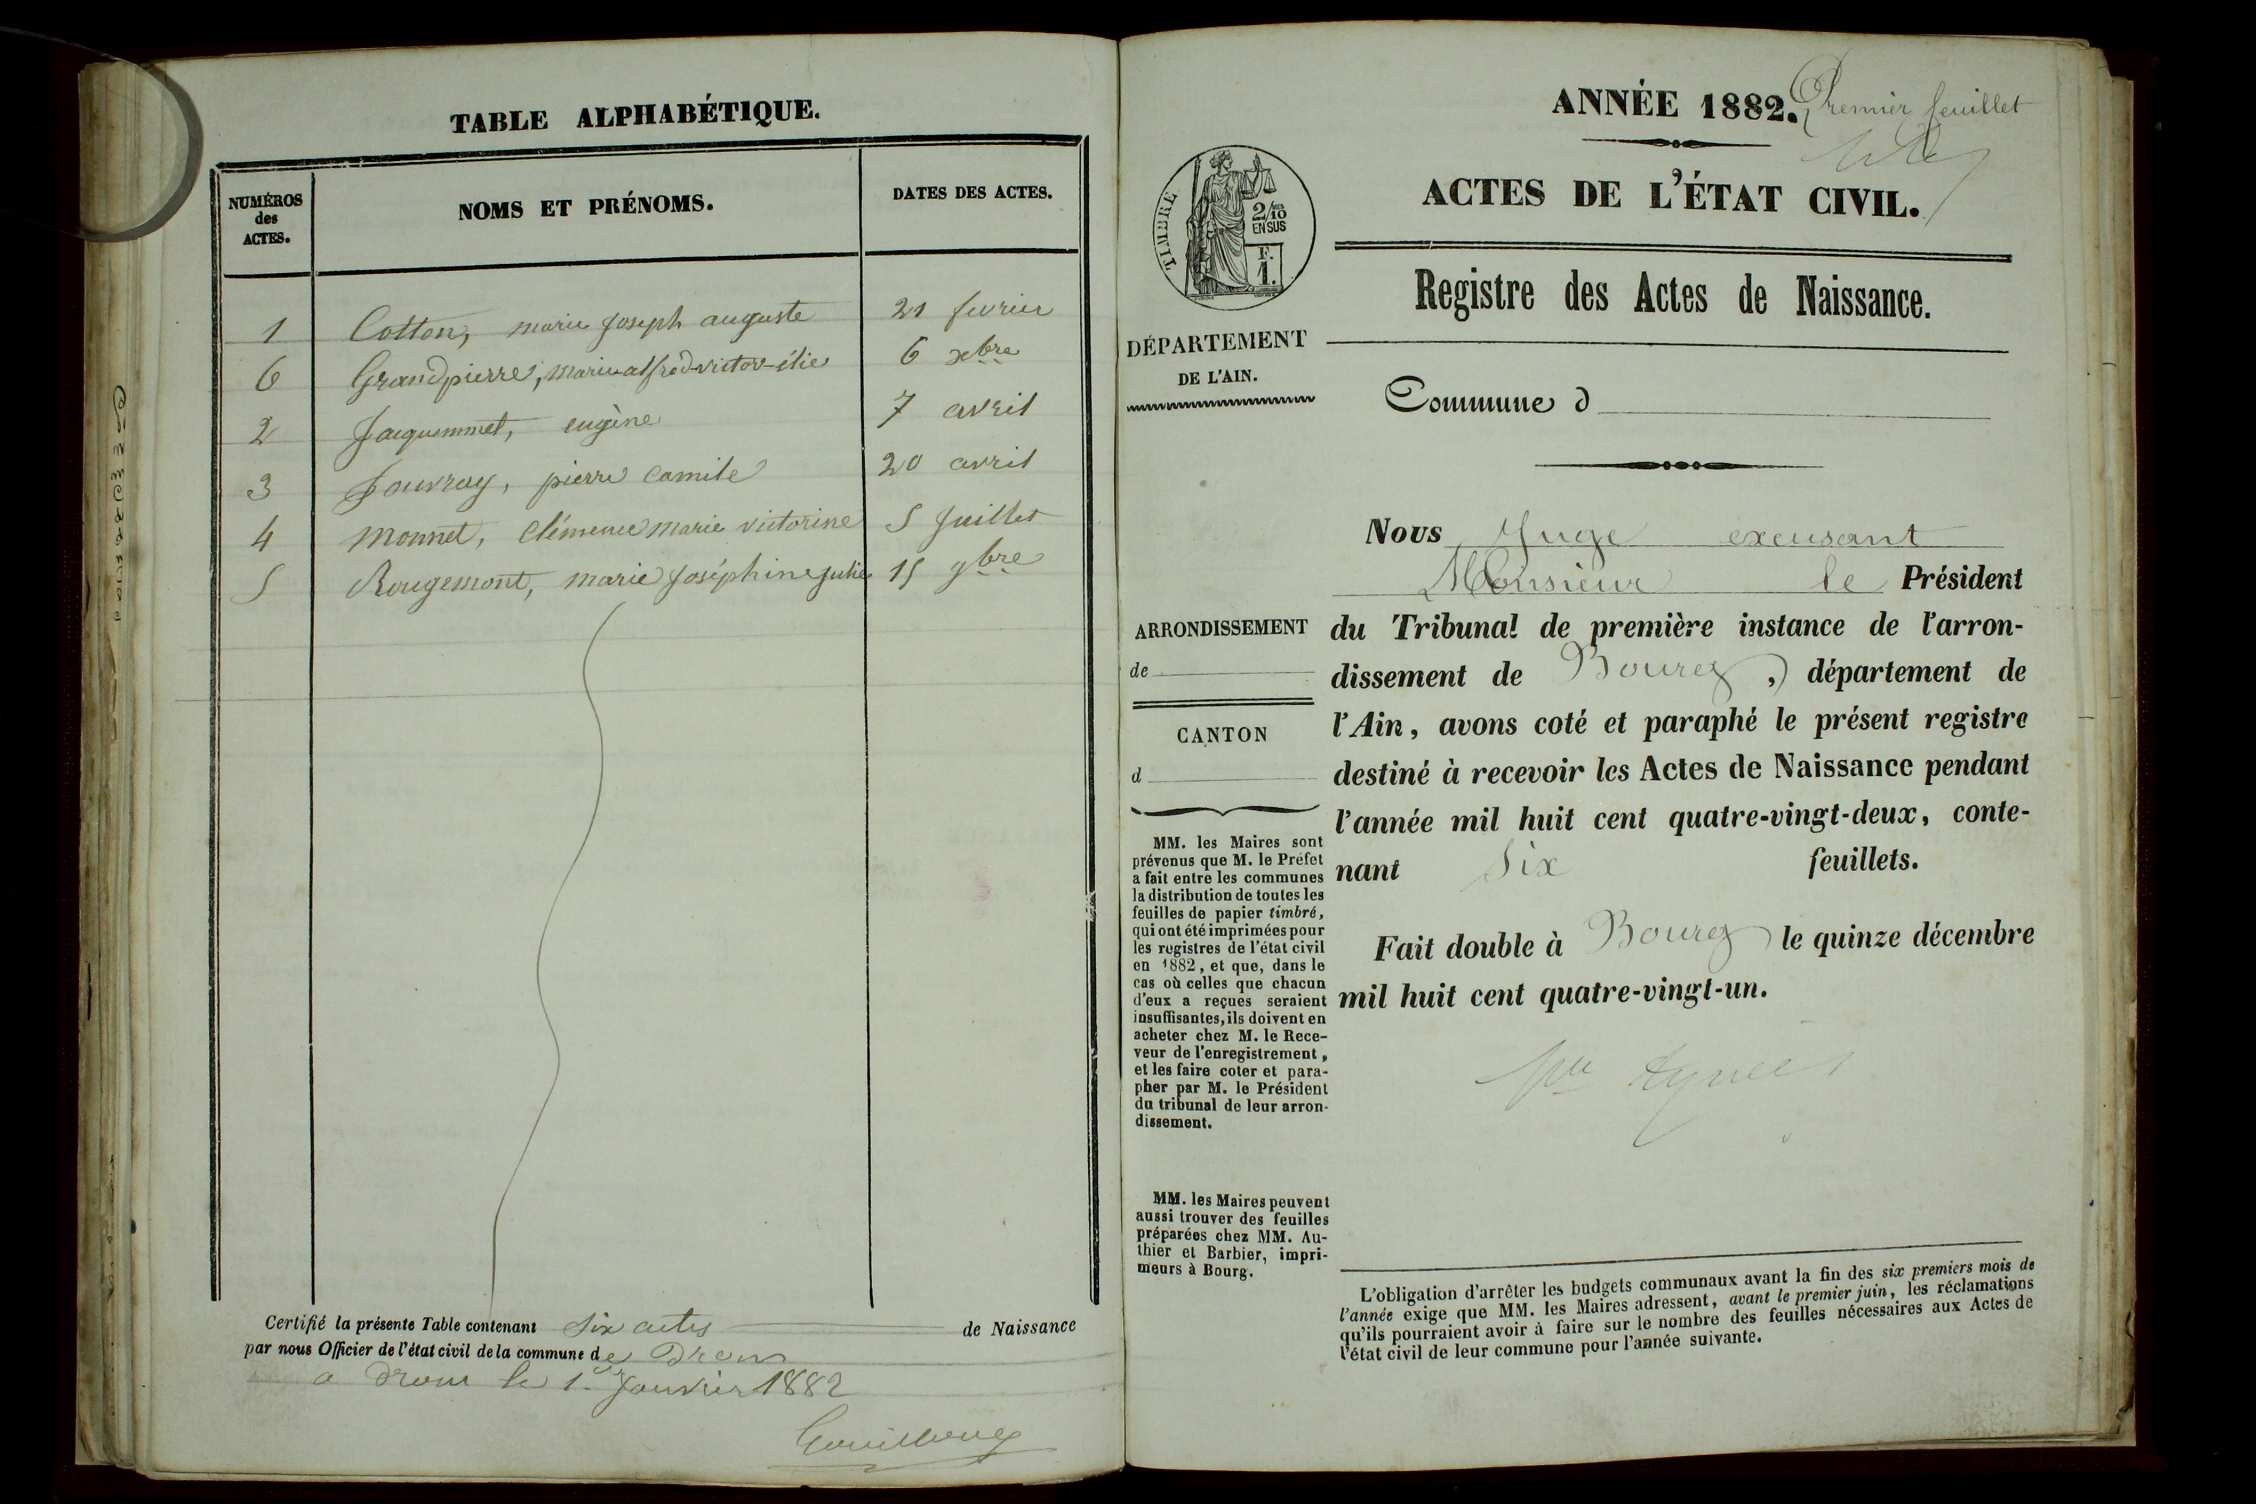 TABLE ALPHABÉTIQUE.
NUMÉROS des ACTES. NOMS ET PRÉNOMS. DATES DES ACTES.
1 Cotton, marie joseph auguste 21 fevrier
6 Grandpierre, marie-alfred-victor-élie 6 xbre
2 Jacquemmet, eugène 7 avril
3 Jouvray, pierre camile 20 avril
4 Monnet, Clémence marie victorine 5 Juillet
5 Rougemont, marie Joséphine Julie 15 9bre
Certifié la présente Table contenant Six actes de Naissance
par nous Officier de l'état civil de la commune de Drom
a Drom le 1er Janvier 1882
ANNÉE 1882. Premier feuillet
ACTES DE L'ÉTAT CIVIL.
TIMBRE
2/10
EN SUS
F.
1.
Registre des Actes de Naissance.
DÉPARTEMENT
DE L'AIN.
Commune d
ARRONDISSEMENT
de
CANTON
d
MM. les Maires sont
prévenus que M. le Préfet
a fait entre les communes
la distribution de toutes les
feuilles de papier timbré,
qui ont été imprimées pour
les registres de l'état civil
en 1882, et que, dans le
cas où celles que chacun
d'eux a reçues seraient
insuffisantes, ils doivent en
acheter chez M. le Rece-
veur de l'enregistrement,
et les faire coter et para-
pher par M. le Président
du tribunal de leur arron-
dissement.
MM. les Maires peuvent
aussi trouver des feuilles
préparées chez MM. Au-
thier et Barbier, impri-
meurs à Bourg.
Nous Juge excusant
Monsieur le Président
du Tribunal de première instance de l'arron-
dissement de Bourg, département de
l'Ain, avons coté et paraphé le présent registre
destiné à recevoir les Actes de Naissance pendant
l'année mil huit cent quatre-vingt-deux, conte-
nant Six feuillets.
Fait double à Bourg le quinze décembre
mil huit cent quatre-vingt-un.
L'obligation d'arrêter les budgets communaux avant la fin des six premiers mois de
l'année exige que MM. les Maires adressent, avant le premier juin, les réclamations
qu'ils pourraient avoir à faire sur le nombre des feuilles nécessaires aux Actes de
l'état civil de leur commune pour l'année suivante.